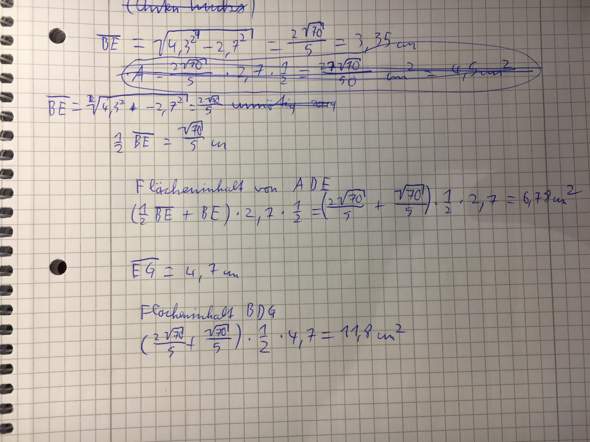 (unten links)
BE = √(4,3² − 2,7²) = 2√70/5 = 3,35 cm
A = 2√70/5 · 2,7 · 1/2 = 27√70/50 cm² = 4,5 cm²
BE = √(4,3² + −2,7²) = 2√70/5
1/2 BE = √70/5 cm
Flächeninhalt von ADE
(1/2 BE + BE) · 2,7 · 1/2 = (2√70/5 + √70/5) · 1/2 · 2,7 = 6,78 cm²
EG = 4,7 cm
Flächeninhalt BDG
(2√70/5 + √70/5) · 1/2 · 4,7 = 11,8 cm²